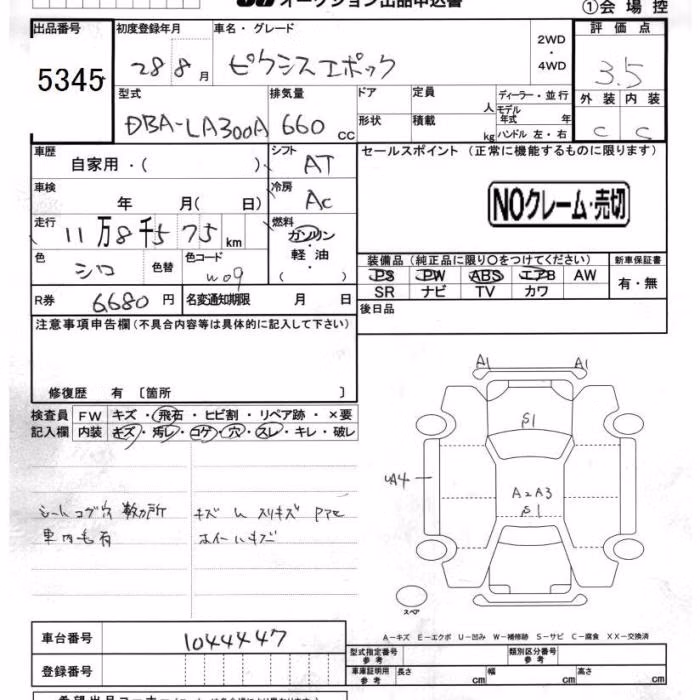 オークション出品申込書
①会場控
出品番号 5345
初度登録年月 28 8月
車名・グレード ピクシスエポック
2WD・4WD
評価点 3.5
外装 C 内装 C
型式 DBA-LA300A
排気量 660 cc
ドア
形状
定員 人
積載 kg
ディーラー・並行
モデル年式 年
ハンドル 左・右
車歴 自家用・( )
シフト AT
セールスポイント (正常に機能するものに限ります)
車検 年 月( 日)
冷房 AC
NOクレーム・売切
走行 11万8千575km
燃料 ガソリン
軽油
( )
色 シロ 色替
色コード W09
装備品(純正品に限り○をつけてください)
新車保証書
PS PW ABS エアB AW
SR ナビ TV カワ
有・無
R券 6680円
名変通知期限 月 日
後日品
注意事項申告欄(不具合内容等は具体的に記入して下さい)
修復歴 有〔箇所 〕
検査員記入欄
FW キズ・飛石・ヒビ割・リペア跡・×要
内装 キズ・汚レ・コゲ・穴・スレ・キレ・破レ
シートコゲ穴 数ヶ所
車内毛有
キズ
スリキズ
ホイールキズ
A1 A1
S1
A4
A2A3
S1
スペア
A-キズ E-エクボ U-凹み W-補修跡 S-サビ C-腐食 XX-交換済
車台番号 1044447
登録番号
型式指定番号 参考
類別区分番号 参考
車庫証明用 参考 長さ cm 幅 cm 高さ cm
希望出品コーナー